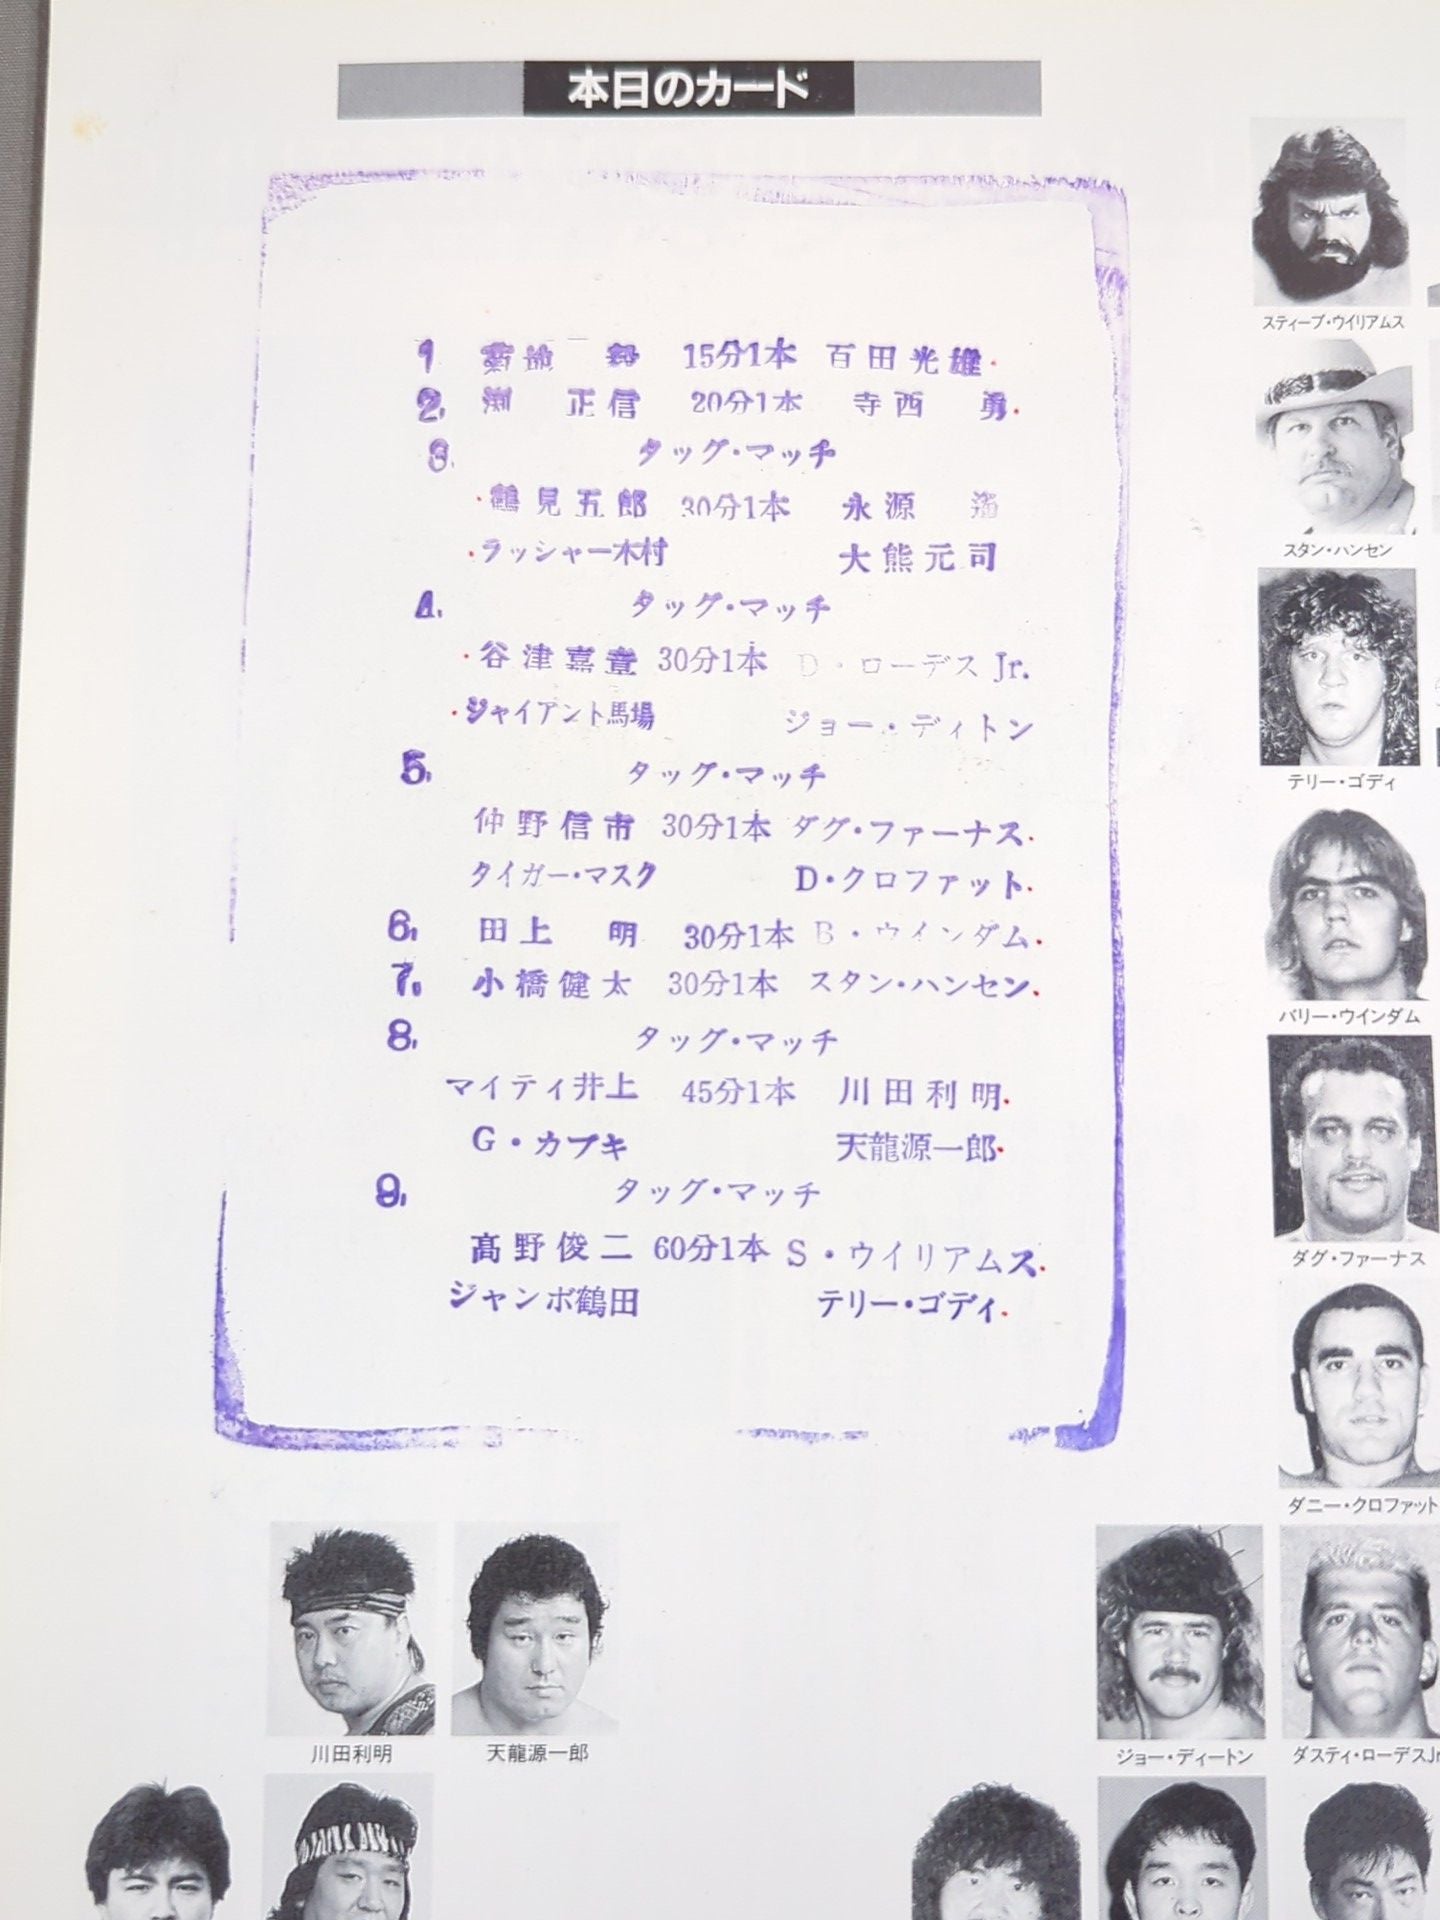 本日のカード
1 菊地 毅 15分1本 百田光雄
2. 渕 正信 20分1本 寺西 勇
3. タッグ・マッチ
鶴見五郎 30分1本 永源 遙
ラッシャー木村 大熊元司
4. タッグ・マッチ
谷津嘉章 30分1本 D・ローデスJr.
ジャイアント馬場 ジョー・ディトン
5. タッグ・マッチ
仲野信市 30分1本 ダグ・ファーナス
タイガー・マスク D・クロファット
6. 田上 明 30分1本 B・ウインダム
7. 小橋健太 30分1本 スタン・ハンセン
8. タッグ・マッチ
マイティ井上 45分1本 川田利明
G・カブキ 天龍源一郎
9. タッグ・マッチ
高野俊二 60分1本 S・ウイリアムス
ジャンボ鶴田 テリー・ゴディ
スティーブ・ウイリアムス
スタン・ハンセン
テリー・ゴディ
バリー・ウインダム
ダグ・ファーナス
ダニー・クロファット
川田利明 天龍源一郎
ジョー・ディートン ダスティ・ローデスJr